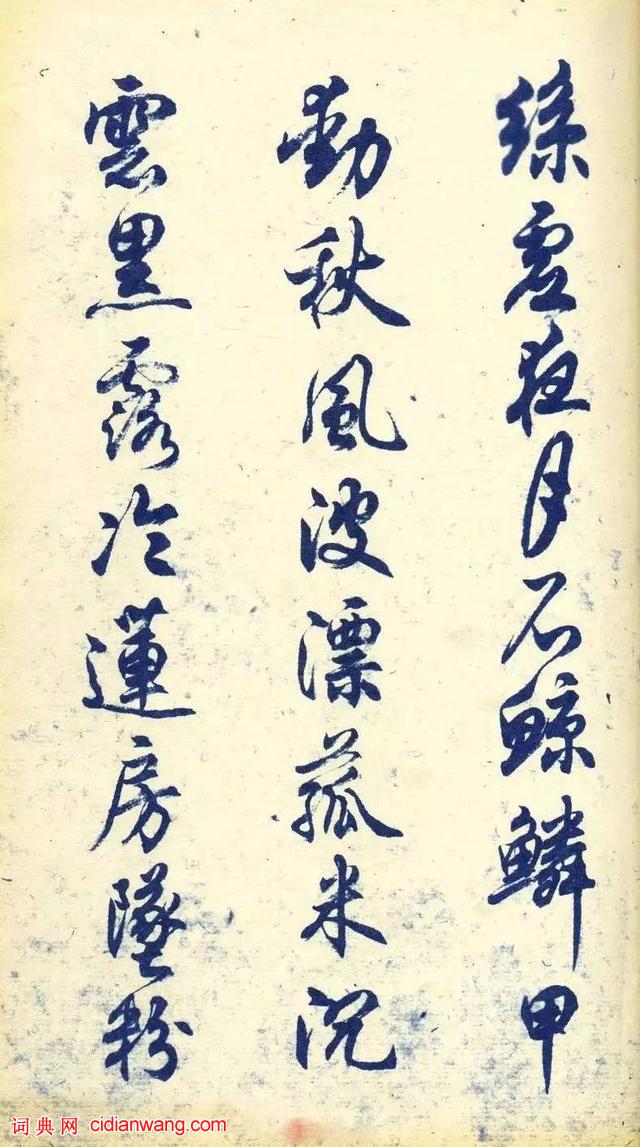 絲虛夜月石鯨鱗甲
動秋風波漂菰米沉
雲黑露冷蓮房墜粉
词典网 cidianwang.com